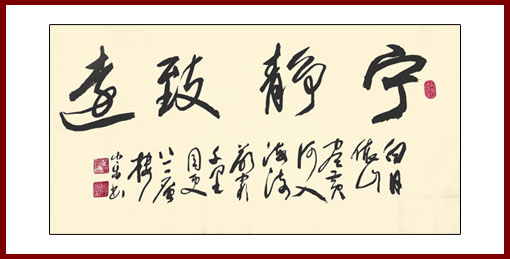 宁静致远
白日
依山
尽黄
河入
海流
欲穷
千里
目更
上一层
楼